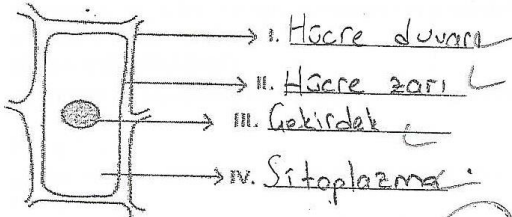 I. Hücre duvarı
II. Hücre zarı
III. Çekirdek
IV. Sitoplazma